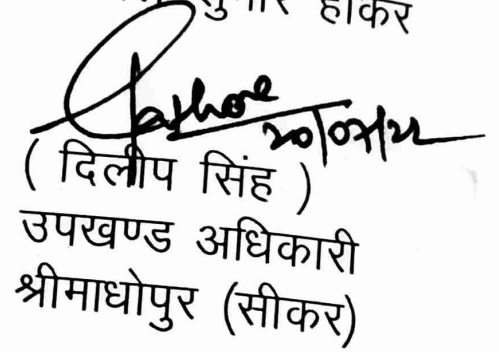 होकर
20/07/22
( दिलीप सिंह )
उपखण्ड अधिकारी
श्रीमाधोपुर (सीकर)